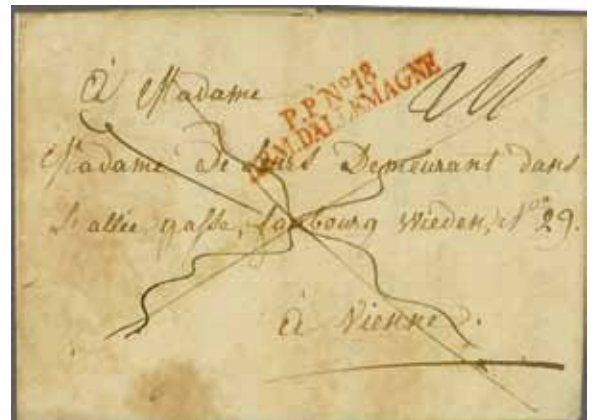 à Madame
P.P. N° 18
ARM. D'ALLEMAGNE
Madame De Demeurant dans
L'allée gasse, fauxbourg Wieden, N° 29.
à Vienne.